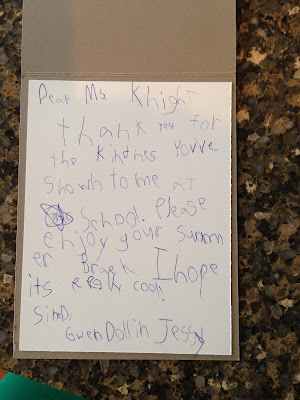 Dear Ms Knight
thank you for
the kindnes You've
shown to me at
School. Please
enjoy your summ
er Braek I hope
its really cool!
GwenDollin Jessy